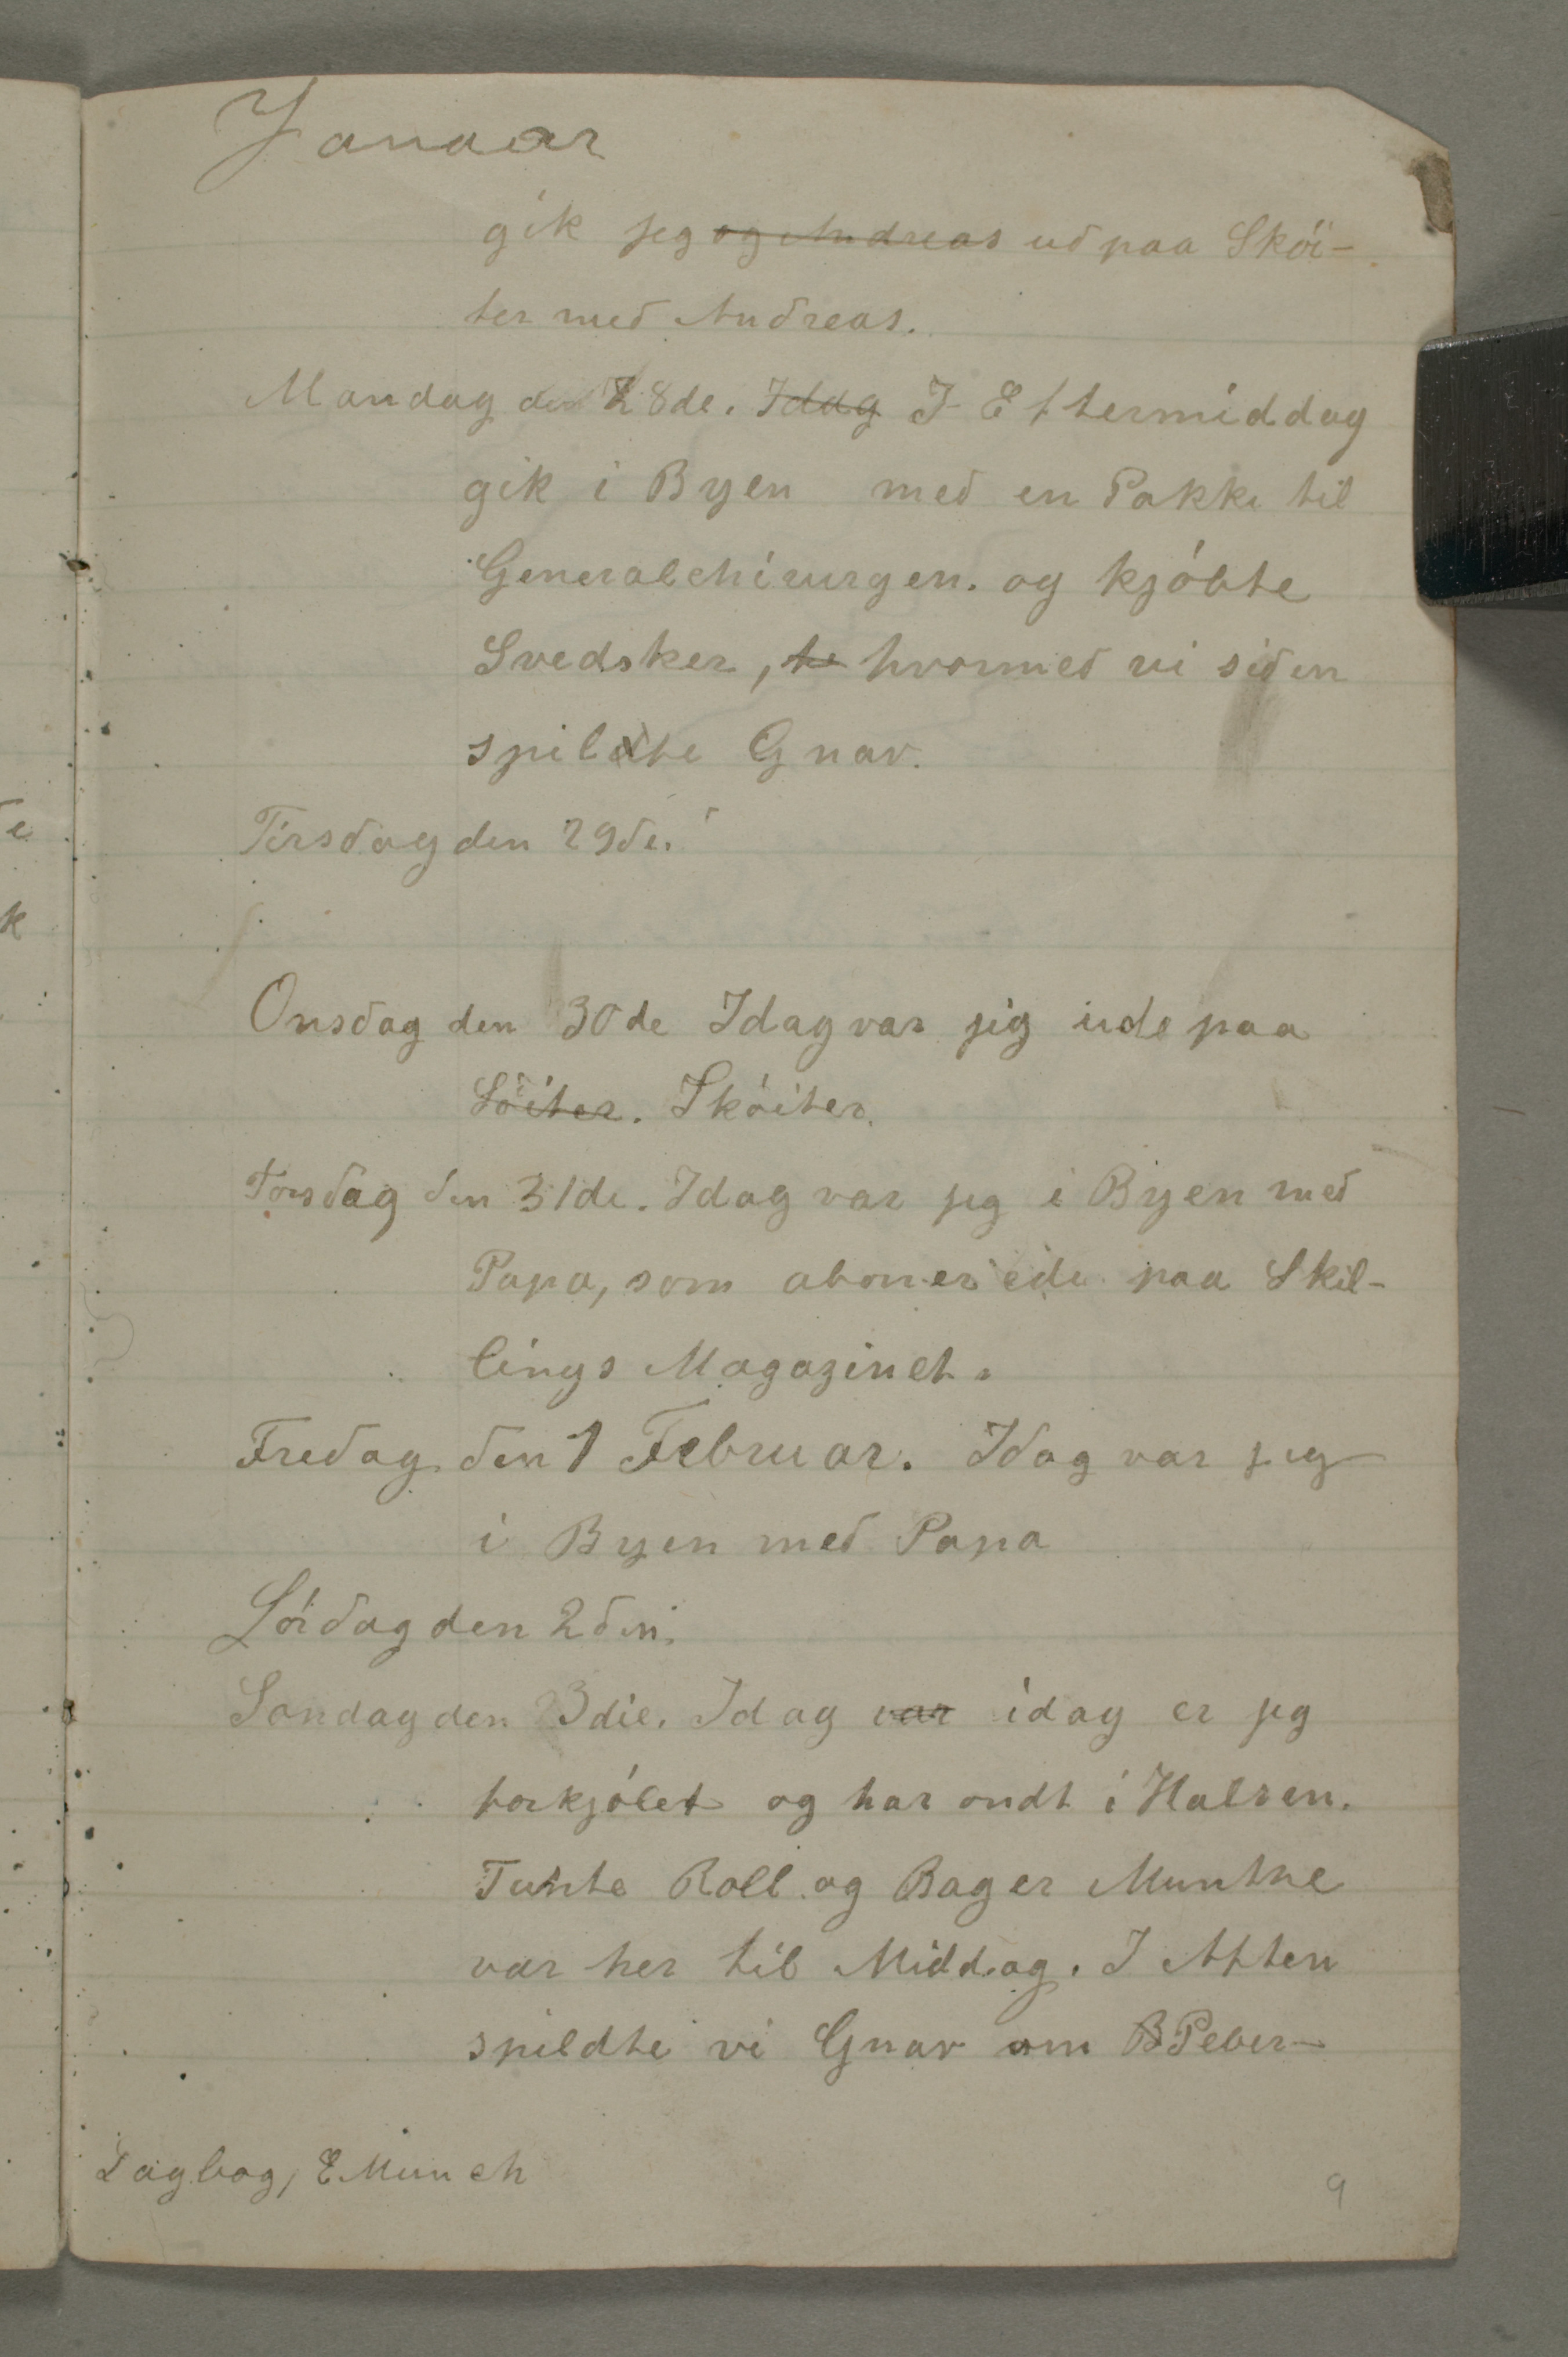 Januar
gik jeg og Andreas ud paa Skøi-
ter med Andreas.
Mandag den 28de. Idag I Eftermiddag
gik i Byen med en Pakke til
Generalchirurgen. og kjóbte
Svedsker, te hvormed vi siden
spildte Gnav.
Tirsdag den 29de.
Onsdag den 30de Idag var jeg ude paa
Söiter. Skóiter.
Torsdag den 31de. Idag var jeg i Byen med
Papa, som abonerede paa Skil-
lings Magazinet.
Fredag den 1 Februar. Idag var jeg
i Byen med Papa
Lórdag den 2den.
Sondag den 3die. Idag var idag er jeg
forkjólet og har ondt i Halsen.
Tante Roll og Bager Munthe
var her til Middag. I Aften
spildte vi Gnav om B Peber-
Dagbog, E Munch
9
e
k